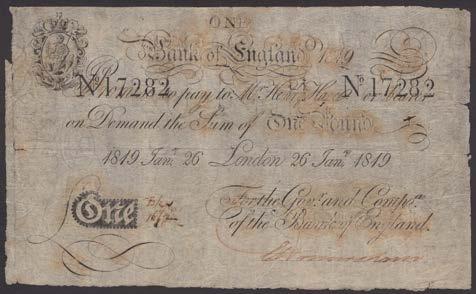 ONE
Bank of England 1819
No. 17282 No. 17282
to pay to Mr. Henry Hase or bearer
on Demand the Sum of One Pound
1819 Jany. 26 London 26 Jany. 1819
For the Govr. and Compa.
of the Bank of England.
One